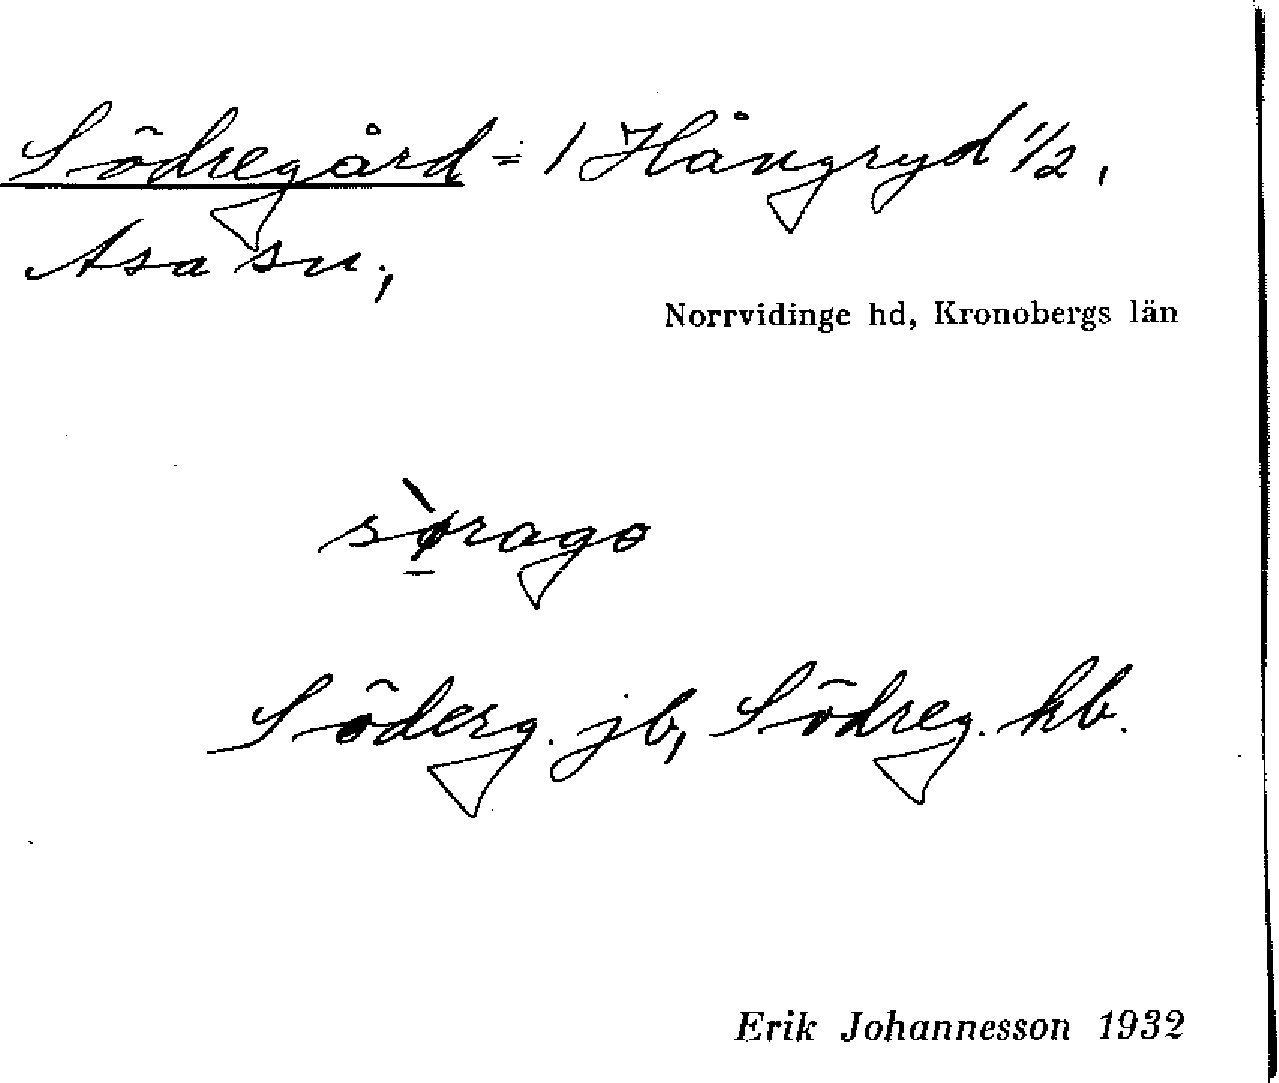 Södregård = 1 Hångryd 1/2,
Asa sn,
Norrvidinge hd, Kronobergs län
sø̠̀rago
Söderg. jb, Södreg. kb.
Erik Johannesson 1932